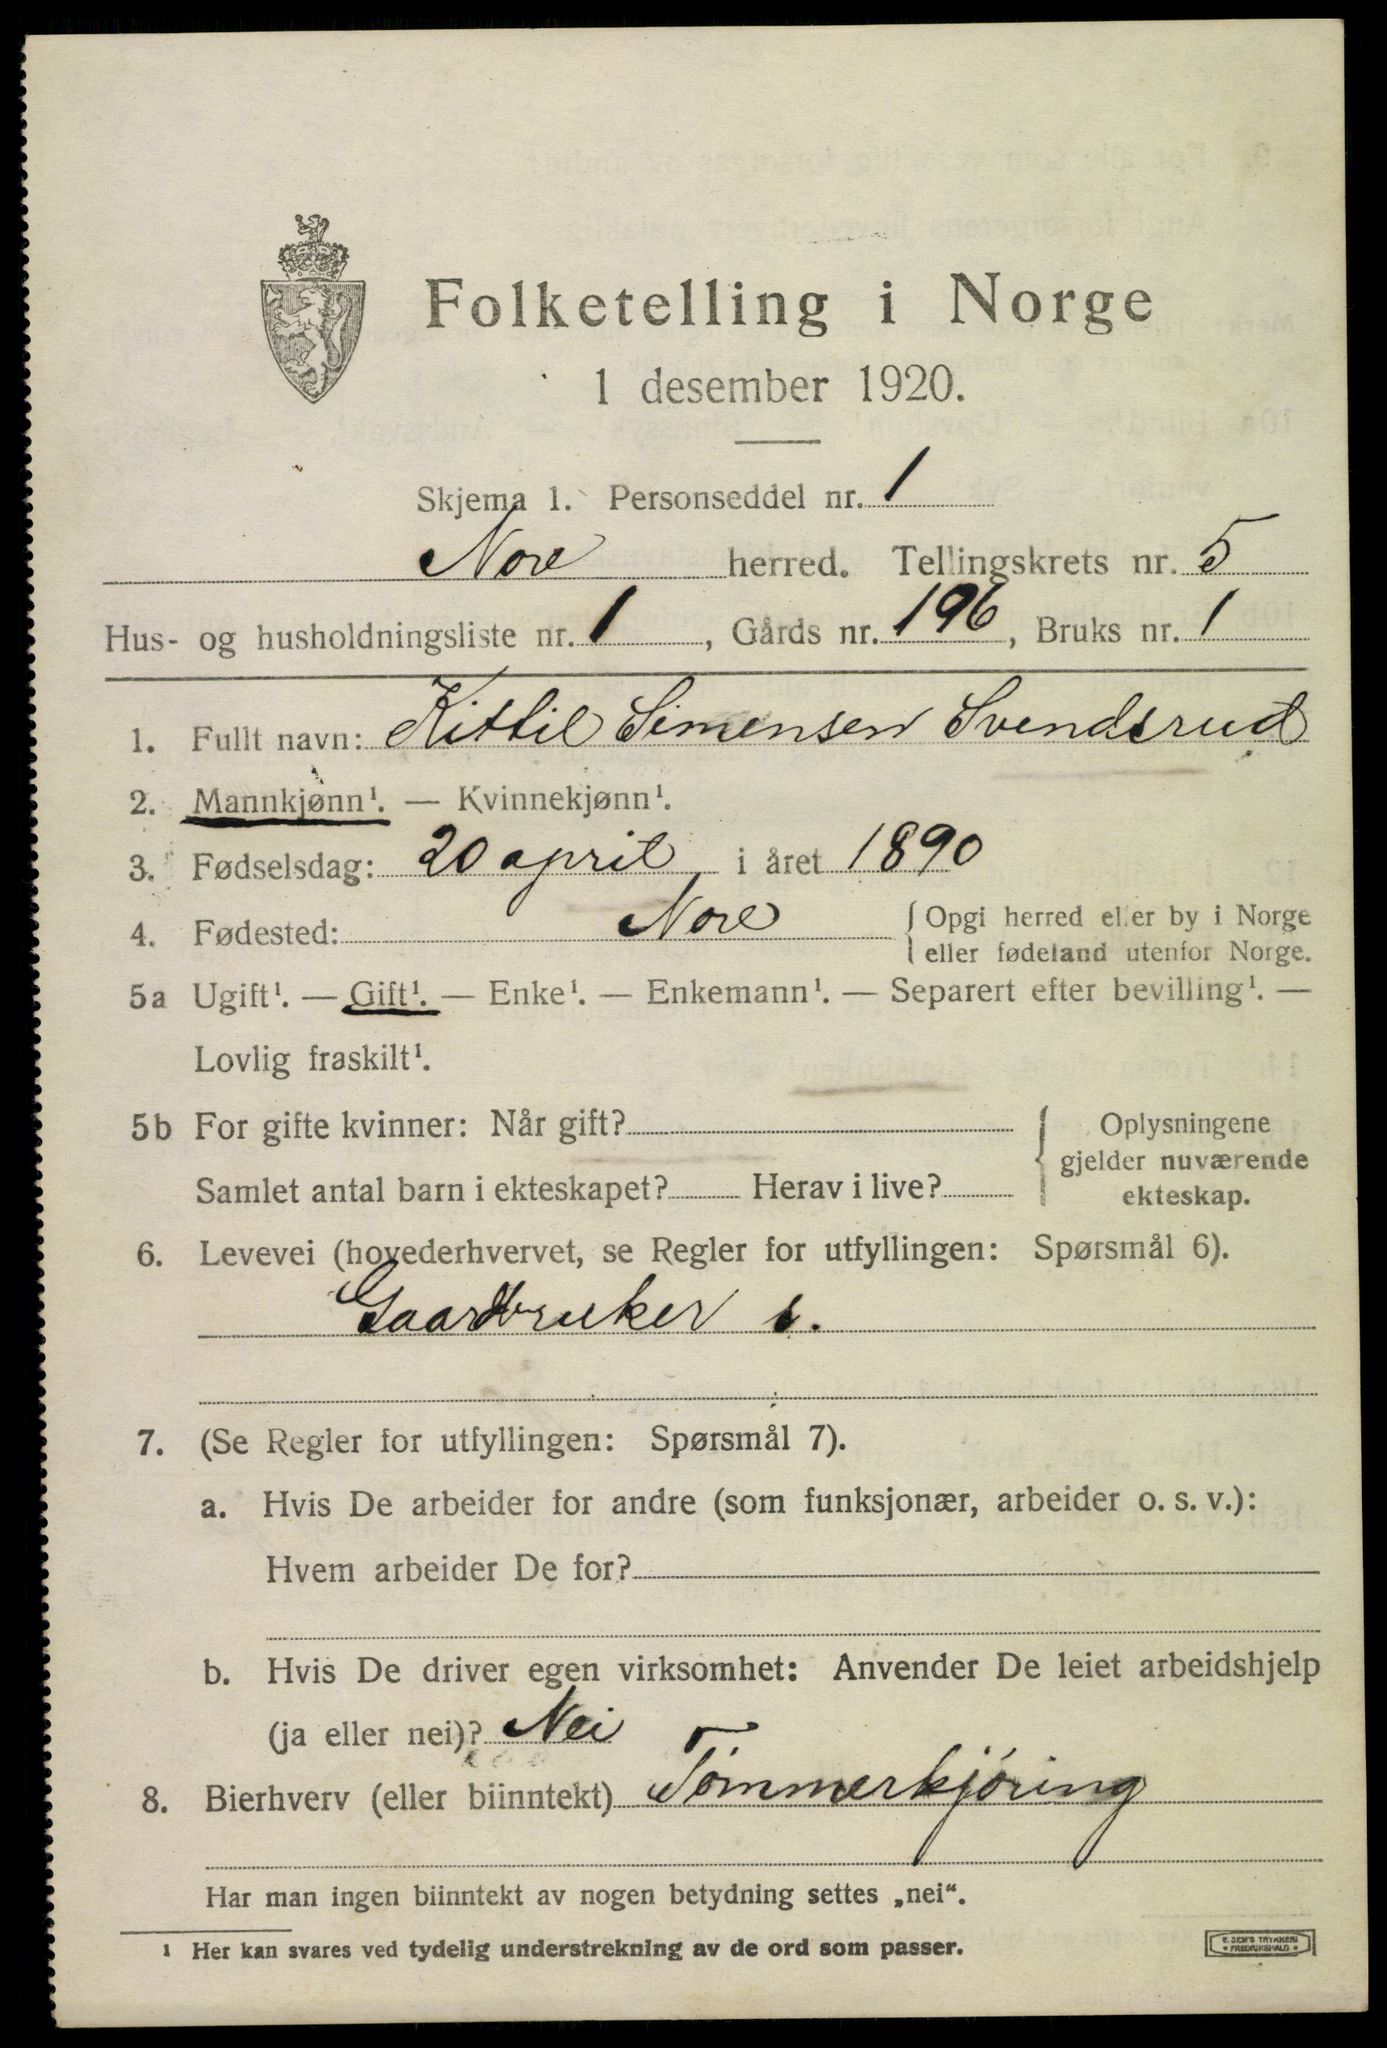 Folketelling i Norge
1 desember 1920.
Skjema 1. Personseddel nr. 1
Nore herred. Tellingskrets nr. 5
Hus- og husholdningsliste nr. 1, Gårds nr. 196, Bruks nr. 1
1. Fullt navn: Kittil Simensen Svendsrud
2. Mannkjønn¹. — Kvinnekjønn¹.
3. Fødselsdag: 20 april i året 1890
4. Fødested: Nore { Opgi herred eller by i Norge
eller fødeland utenfor Norge.
5a Ugift¹. — Gift¹. — Enke¹. — Enkemann¹. — Separert efter bevilling¹. —
Lovlig fraskilt¹.
5b For gifte kvinner: Når gift?
Samlet antal barn i ekteskapet? Herav i live?
{ Oplysningene
gjelder nuværende
ekteskap.
6. Levevei (hovederhvervet, se Regler for utfyllingen: Spørsmål 6).
Gaardbruker s.
7. (Se Regler for utfyllingen: Spørsmål 7).
a. Hvis De arbeider for andre (som funksjonær, arbeider o. s. v.):
Hvem arbeider De for?
b. Hvis De driver egen virksomhet: Anvender De leiet arbeidshjelp
(ja eller nei)? Nei
8. Bierhverv (eller biinntekt) Tømmerkjøring
Har man ingen biinntekt av nogen betydning settes „nei“.
¹ Her kan svares ved tydelig understrekning av de ord som passer.
E. SEM'S TRYKKERI
FREDRIKSHALD